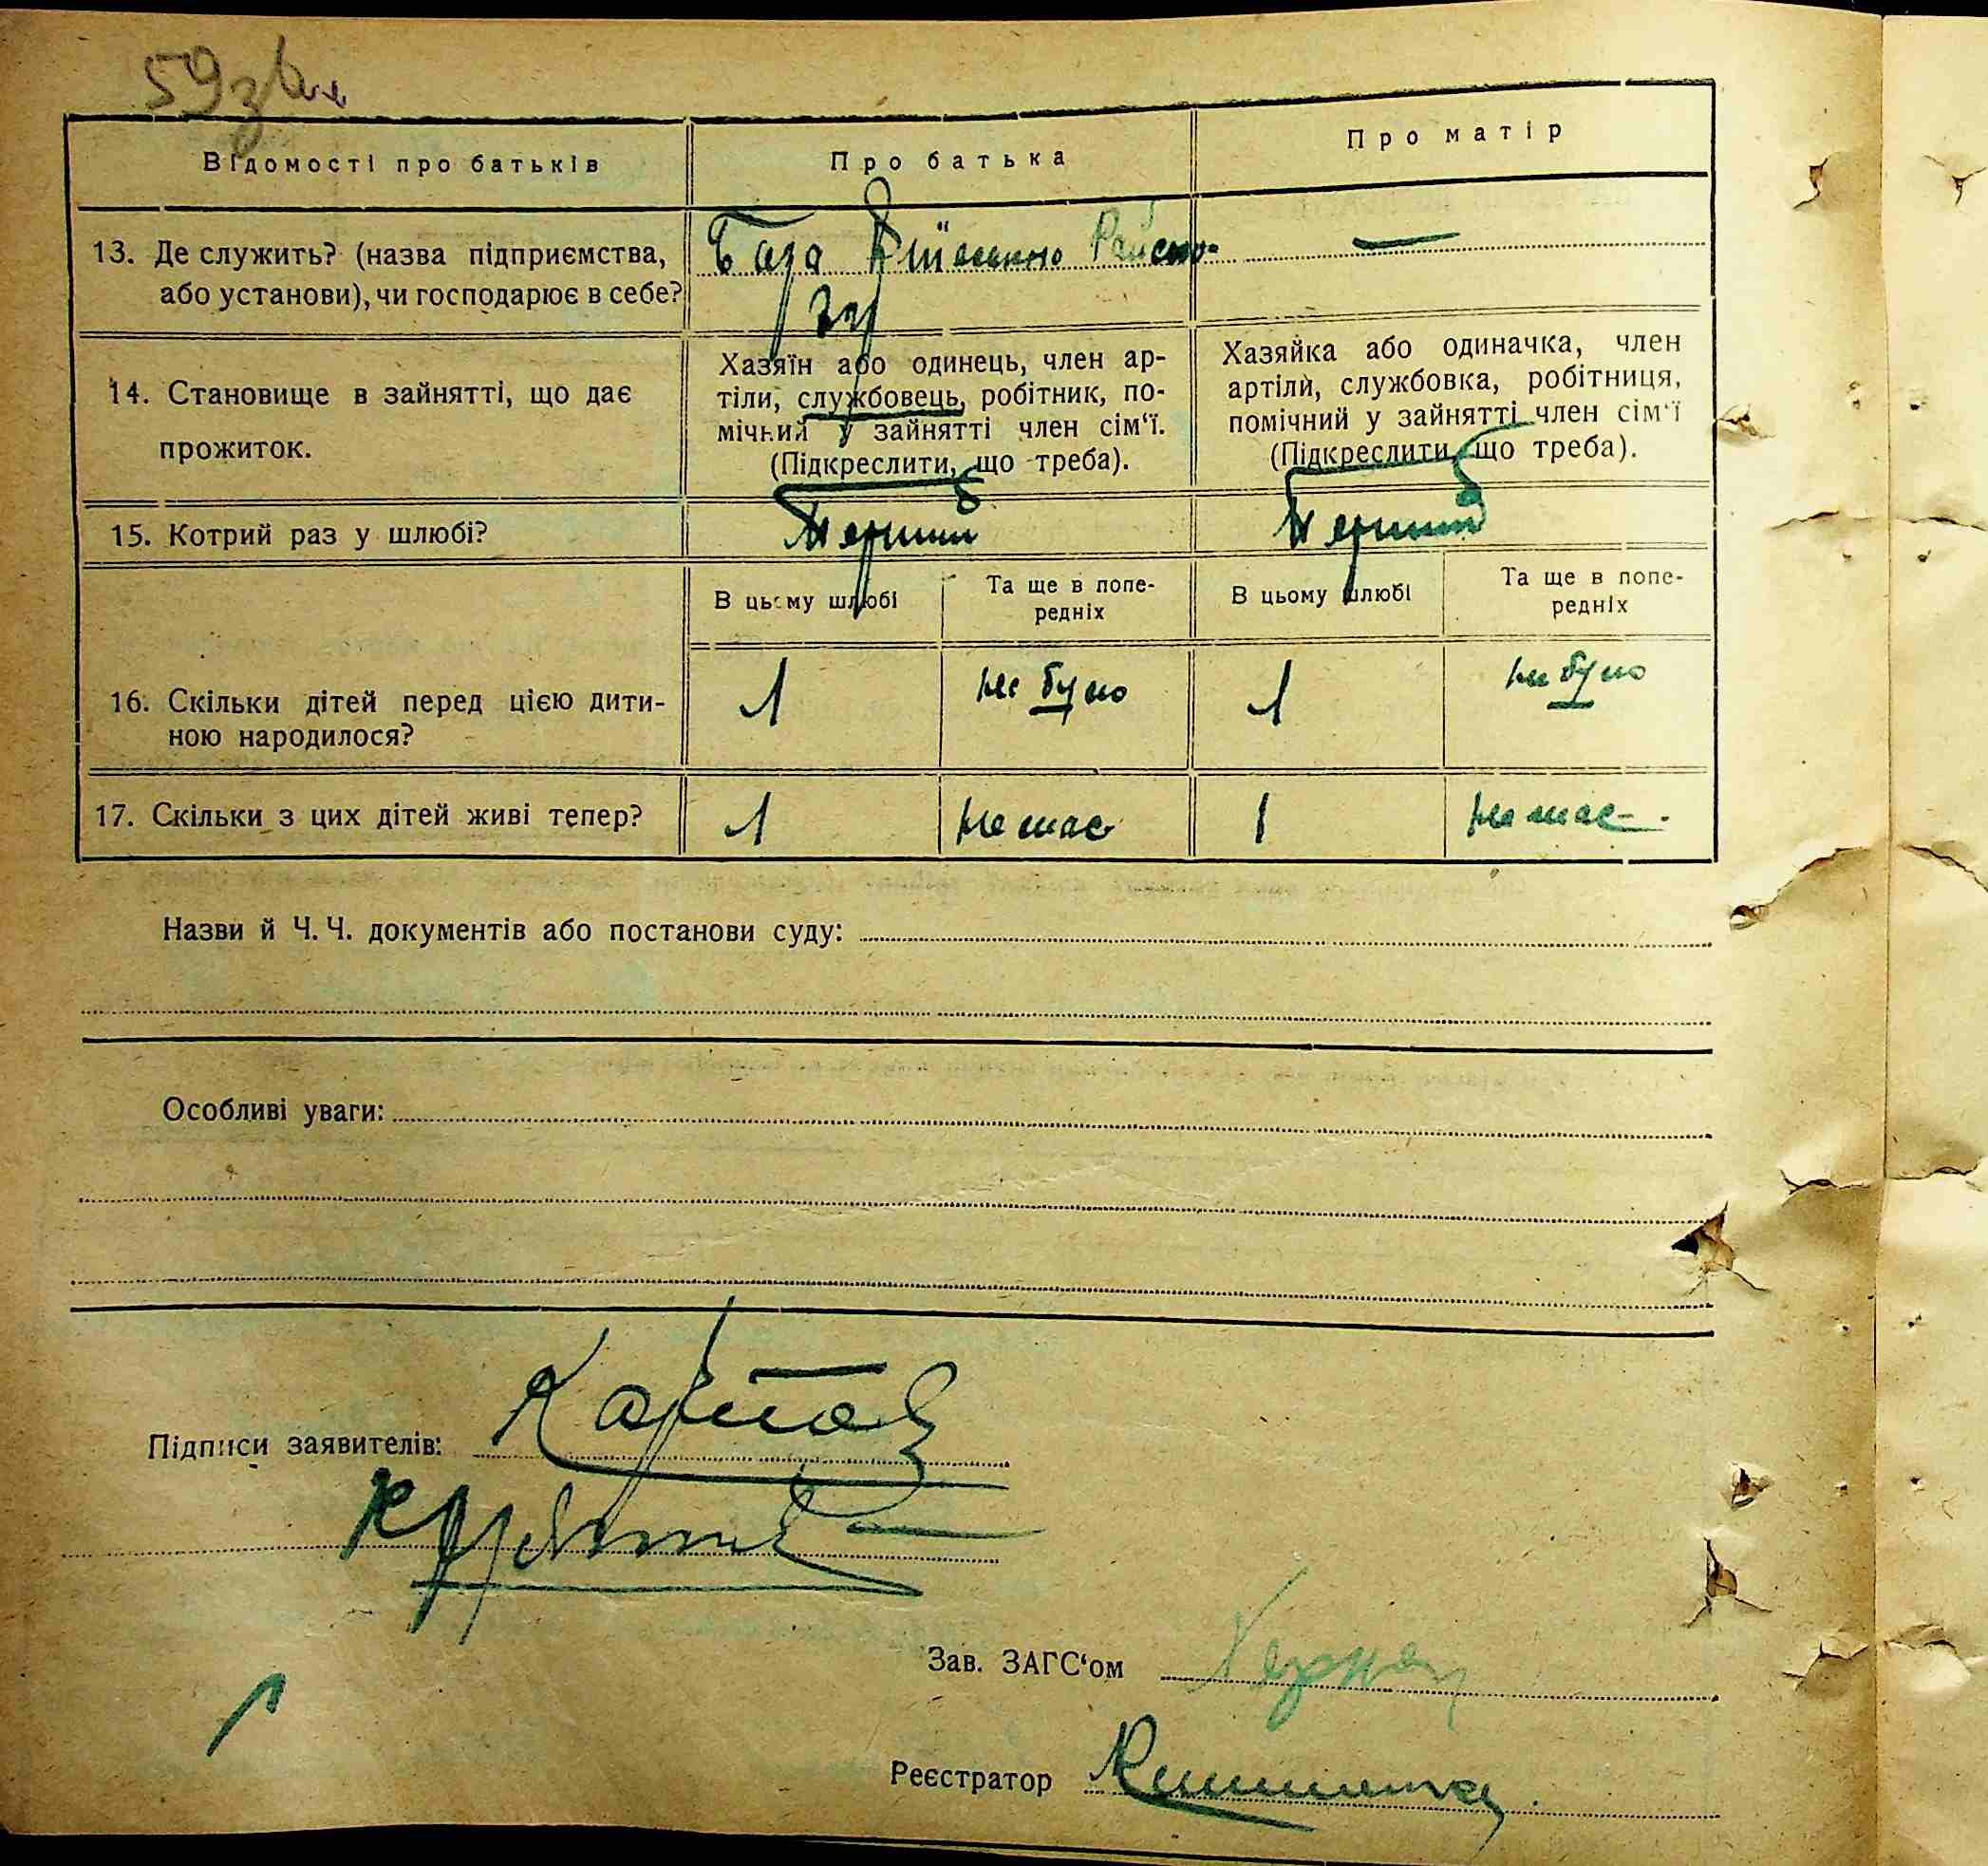 59 зв
Відомості про батьків
Про батька
Про матір
13. Де служить? (назва підприємства,
або установи), чи господарює в себе?
База
—
14. Становище в зайнятті, що дає
прожиток.
Хазяїн або одинець, член ар-
тіли, службовець, робітник, по-
мічний у зайнятті член сім‘ї.
(Підкреслити, що треба).
Хазяйка або одиначка, член
артіли, службовка, робітниця,
помічний у зайнятті член сім‘ї
(Підкреслити, що треба).
15. Котрий раз у шлюбі?
Перший
Перший
В цьому шлюбі
Та ще в попе-
редніх
В цьому шлюбі
Та ще в попе-
редніх
16. Скільки дітей перед цією дити-
ною народилося?
1
не було
1
не було
17. Скільки з цих дітей живі тепер?
1
немає
1
немає.
Назви й Ч. Ч. документів або постанови суду:
Особливі уваги:
Підписи заявителів:
Зав. ЗАГС‘ом
Реєстратор